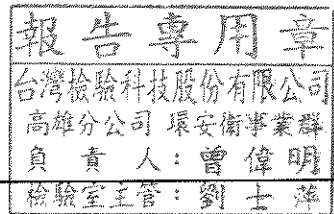 報告專用章
台灣檢驗科技股份有限公司
高雄分公司 環安衛事業群
負責人:曾偉明
檢驗室主管:劉士萍